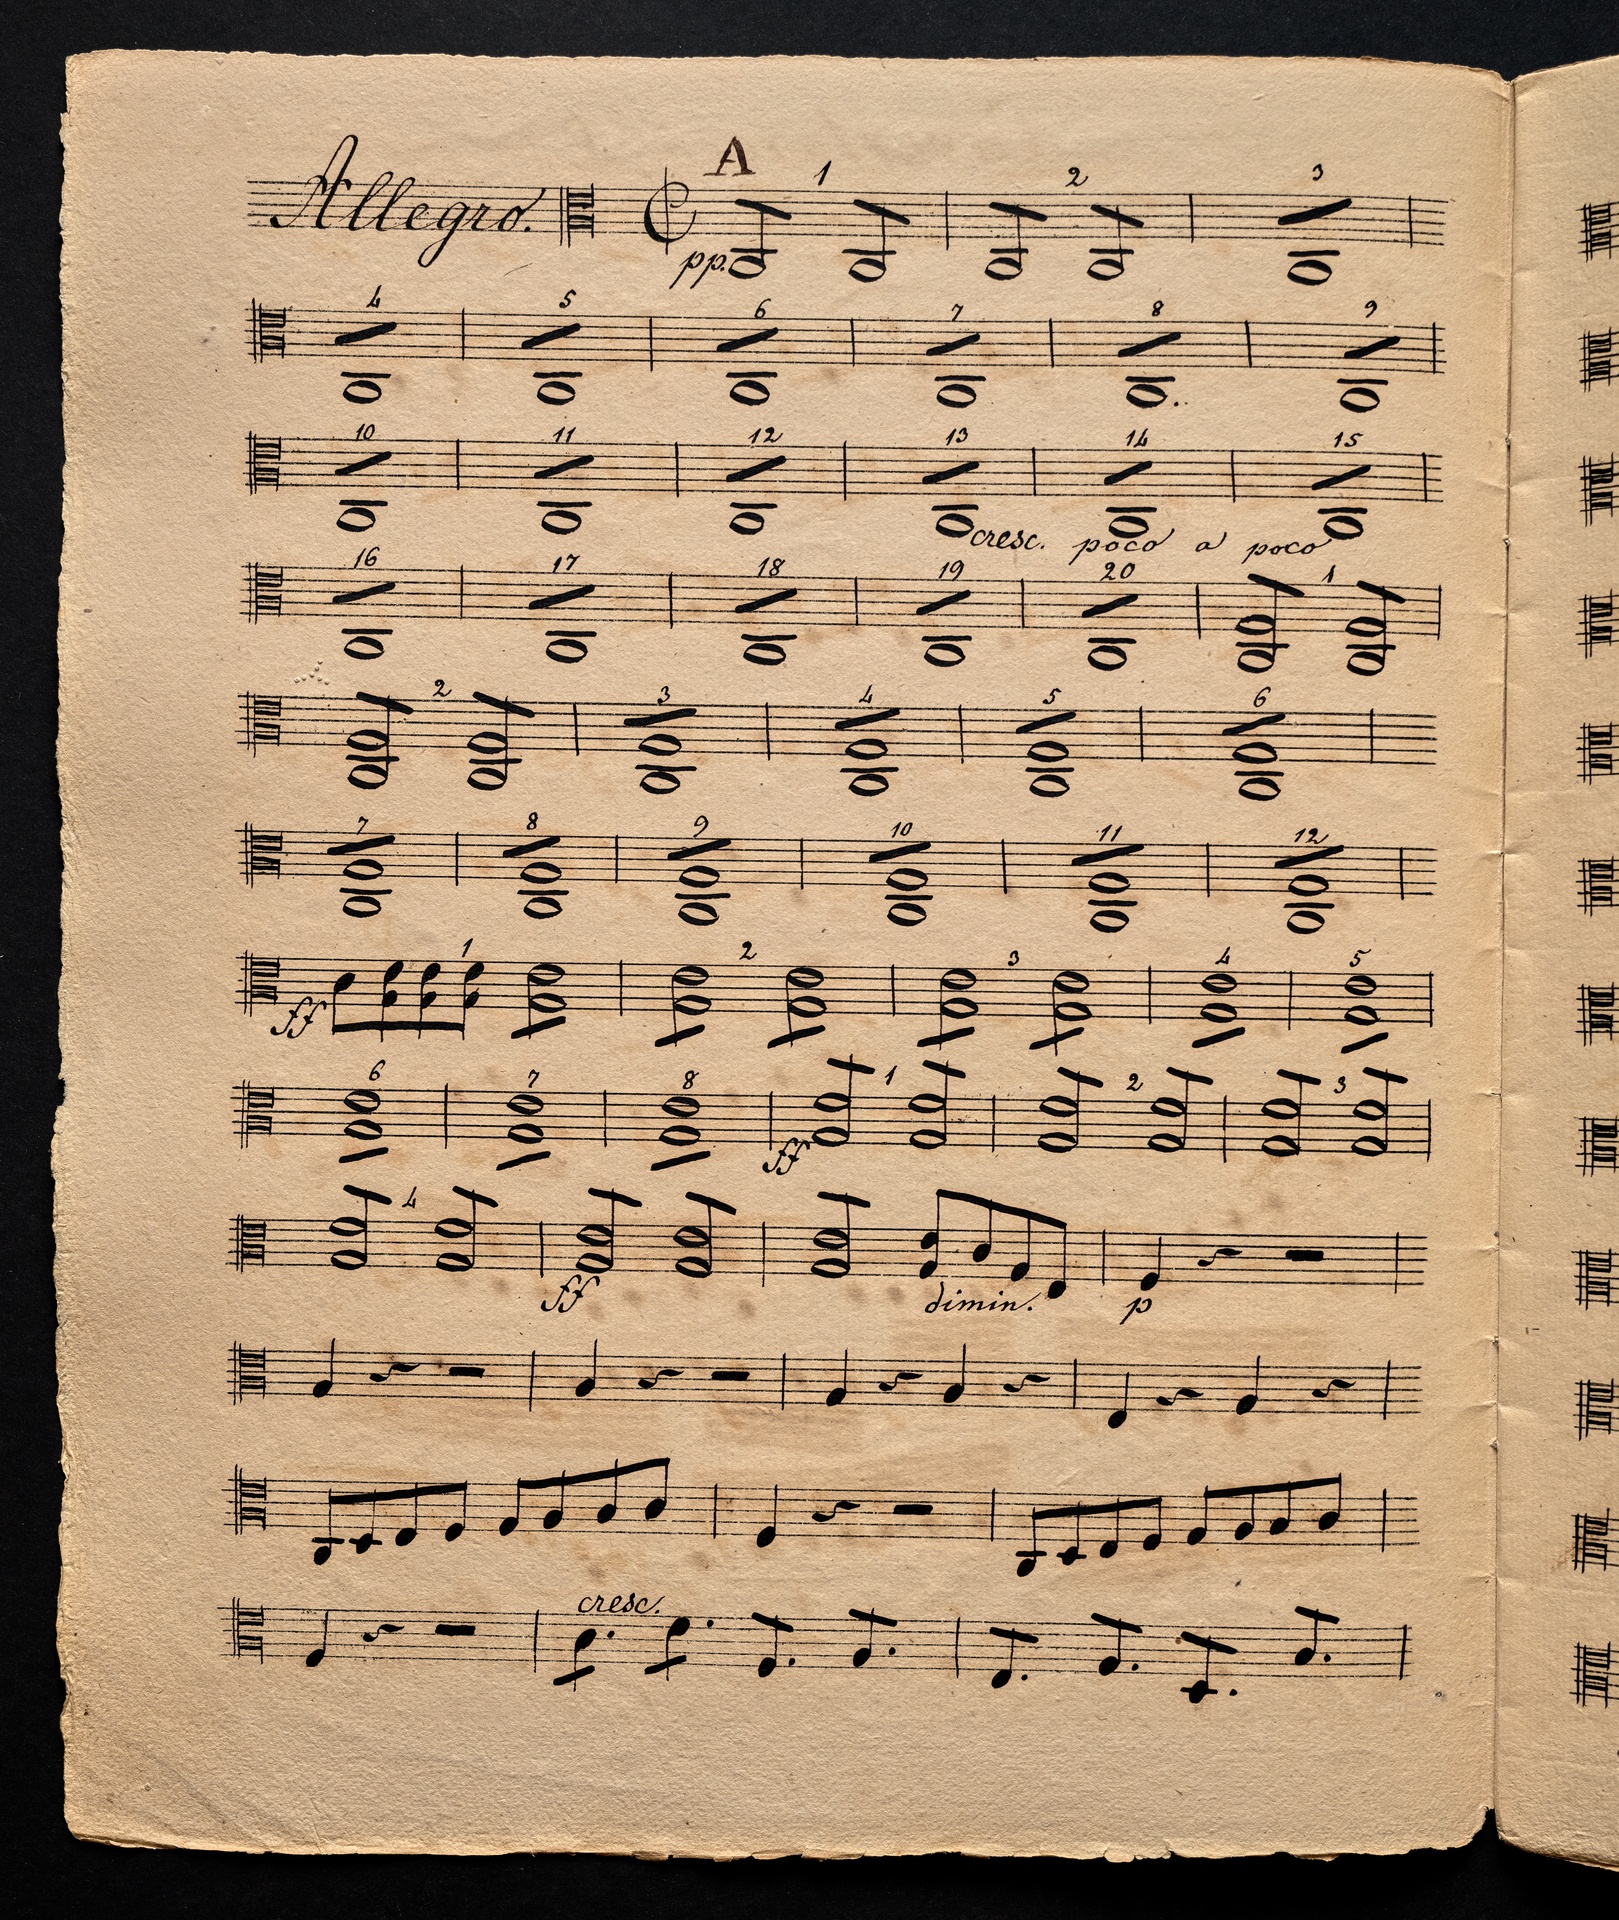 A 1 2 3
Allegro.
pp.
4 5 6 7 8 9
10 11 12 13 14 15
cresc. poco a poco
16 17 18 19 20 1
2 3 4 5 6
7 8 9 10 11 12
1 2 3 4 5
ff
6 7 8 1 2 3
ff
4
ff dimin. p
cresc.